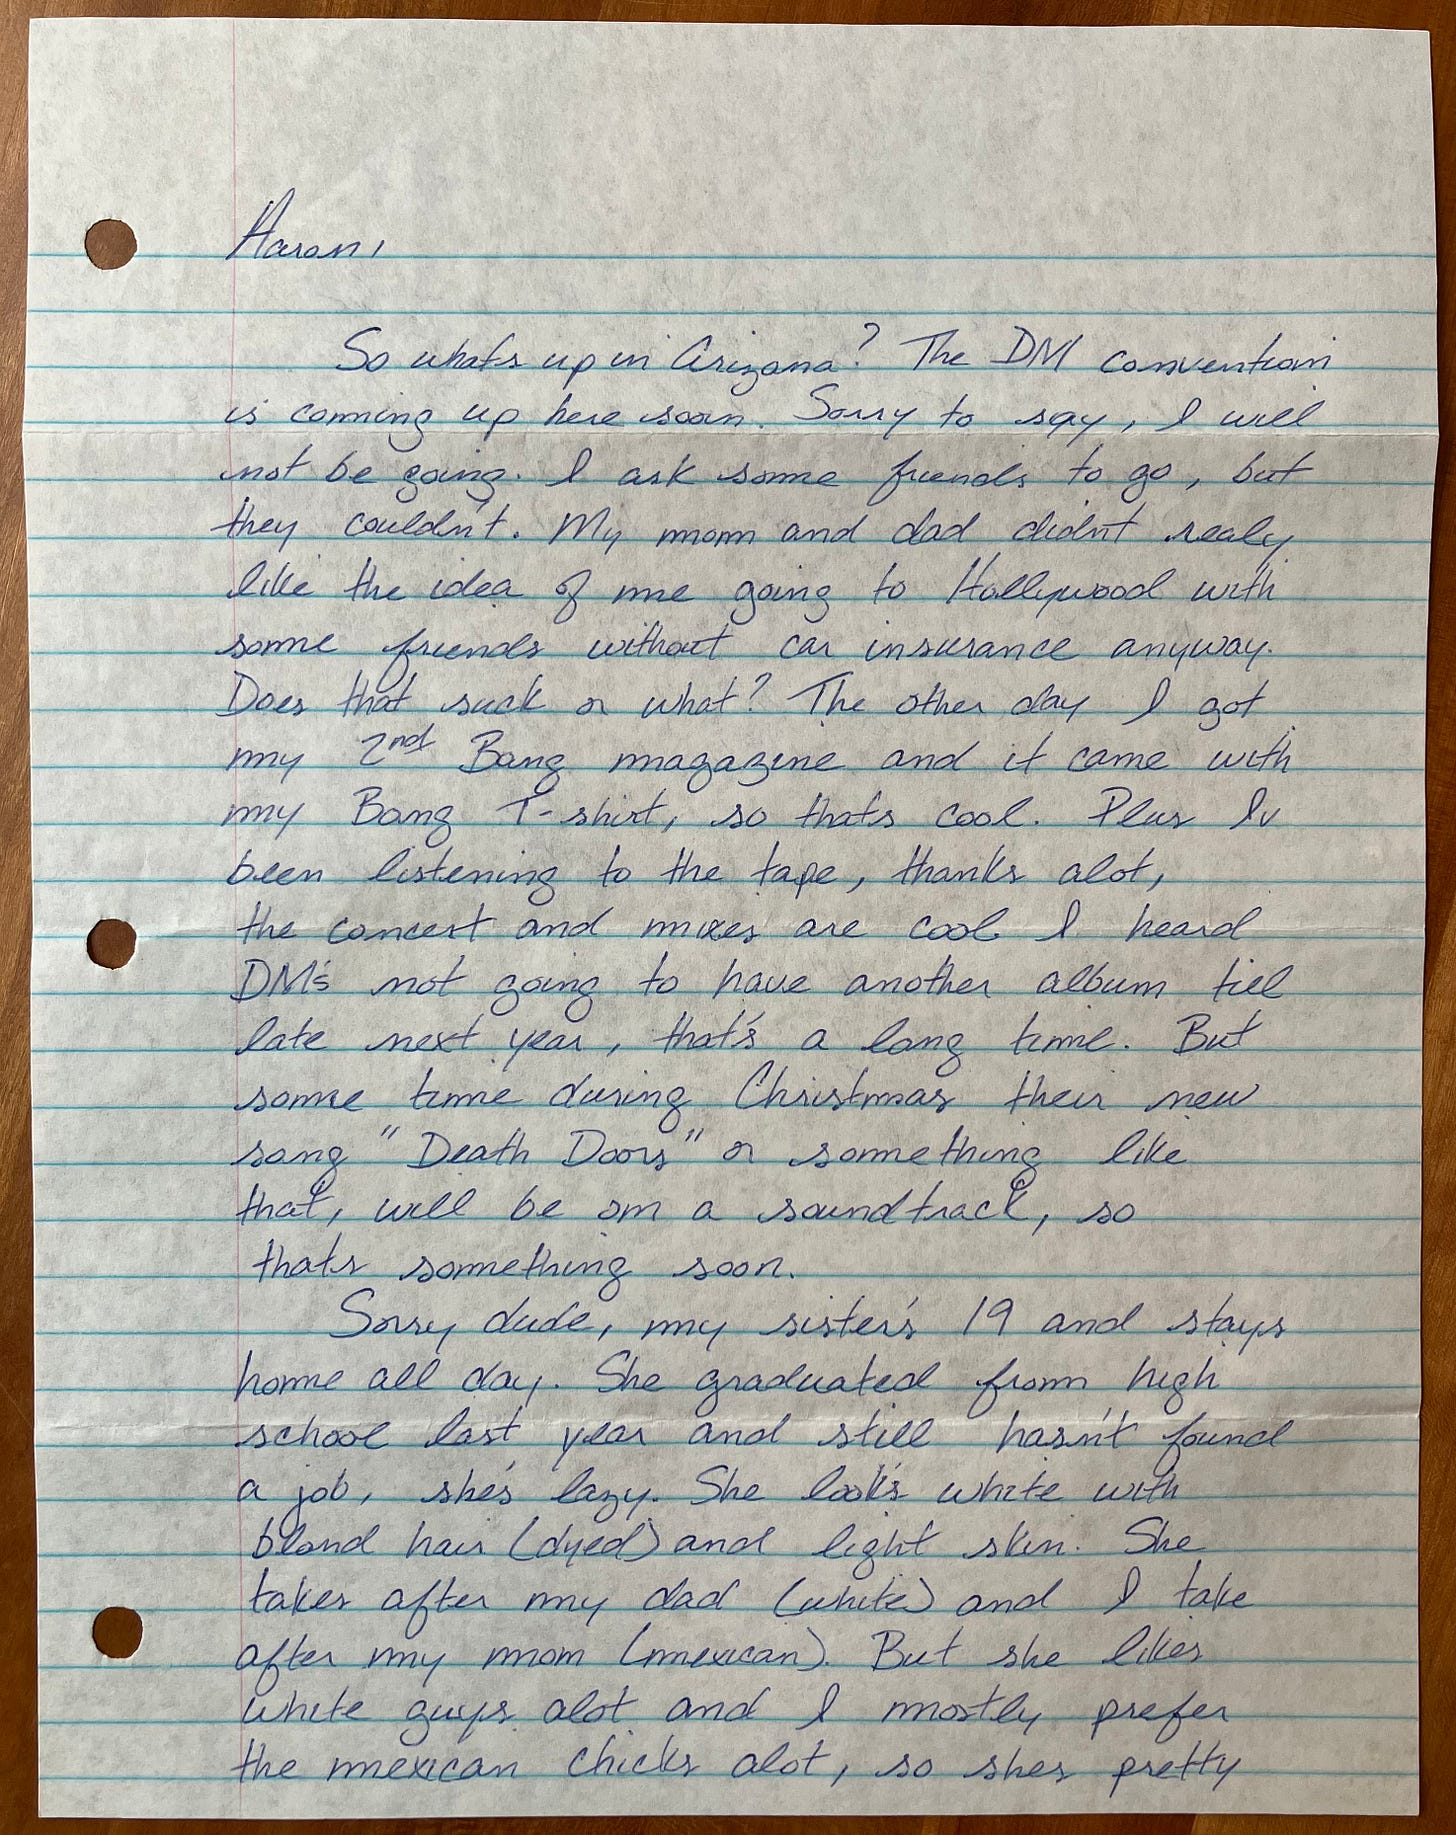 Aaron,
So what's up in Arizona? The DM convention
is coming up here soon. Sorry to say, I will
not be going. I ask some friends to go, but
they couldn't. My mom and dad didn't realy
like the idea of me going to Hollywood with
some friends without car insurance anyway.
Does that suck or what? The other day I got
my 2nd Bang magazine and it came with
my Bang T-shirt, so thats cool. Plus Iv
been listening to the tape, thanks alot,
the concert and mixes are cool I heard
DM's not going to have another album till
late next year, that's a long time. But
some time during Christmas their new
song "Death Doors" or something like
that, will be on a soundtrack, so
thats something soon.
Sorry dude, my sister's 19 and stays
home all day. She graduated from high
school last year and still hasn't found
a job, she's lazy. She look's white with
blond hair (dyed) and light skin. She
takes after my dad (white) and I take
after my mom (mexican). But she likes
white guys alot and I mostly prefer
the mexican chicks alot, so shes pretty